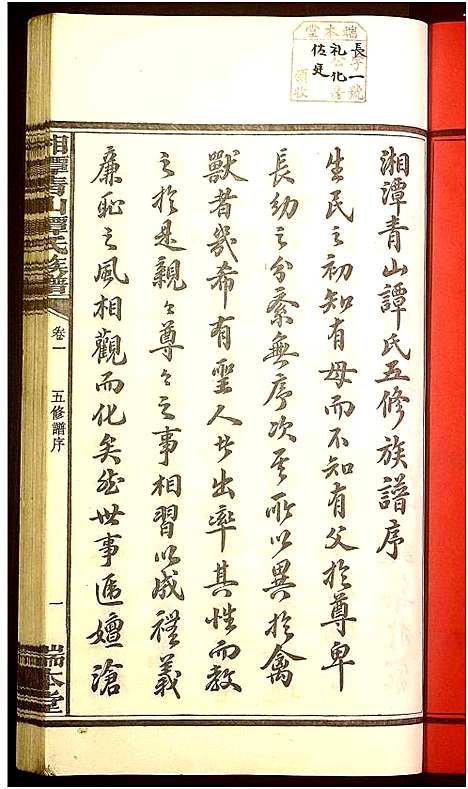 端木堂
長字一號
禮公化善
佐廷
領收
湘潭青山譚氏五修族譜序
生民之初知有母而不知有父於尊卑
長幼之分紊無序次其所以異於禽
獸者幾希有聖人者出率其性而教
之於是親〻尊〻之事相習以成禮義
廉恥之風相觀而化矣然世事遞嬗滄
湘潭青山譚氏族譜
卷一
五修譜序
一
端本堂